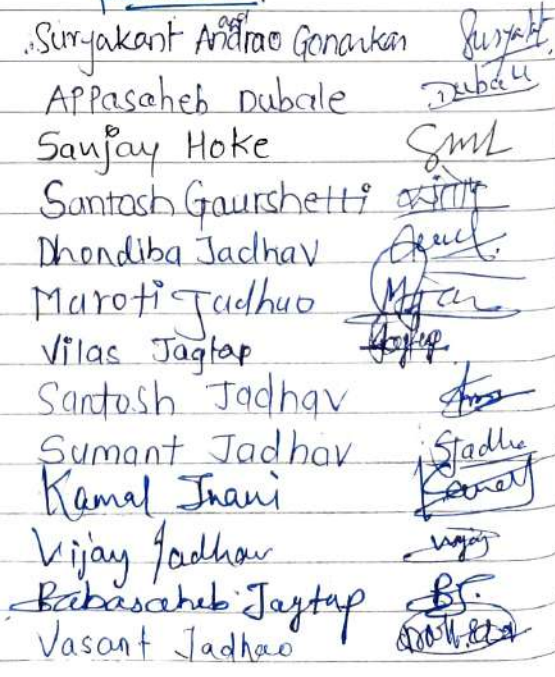 Suryakant Andrao Gonarkar Suryakt
Appasaheb Dubale Dubale
Sanjay Hoke
Santosh Gaurshetti
Dhondiba Jadhav
Maroti Jadhao
Vilas Jagtap Jagtap
Santosh Jadhav
Sumant Jadhav SJadha
Kamal Inani Kamal
Vijay Jadhav Vijay
Babasaheb Jagtap BJ.
Vasant Jadhao